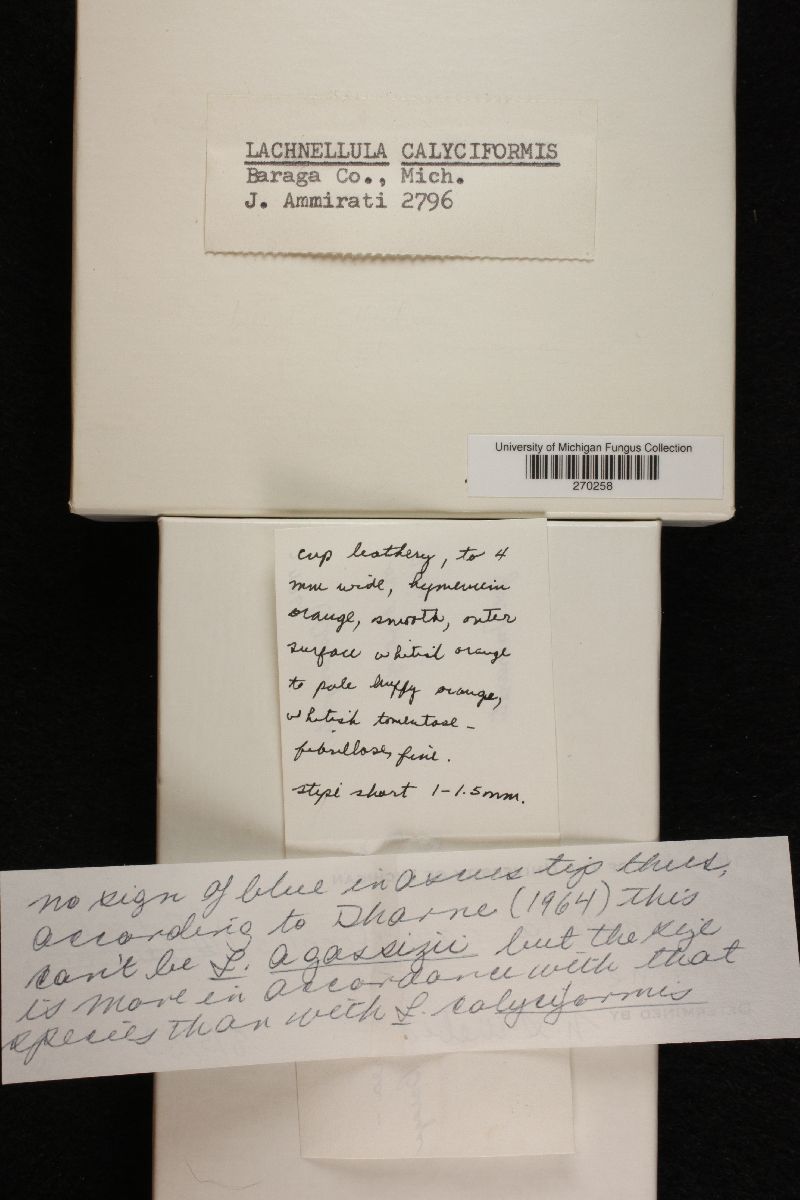 LACHNELLULA CALYCIFORMIS
Baraga Co., Mich.
J. Ammirati 2796
University of Michigan Fungus Collection
270258
cup leathery, to 4
mm wide, hymenium
orange, smooth, outer
surface whitish orange
to pale buffy orange,
whitish tomentose-
fibrillose, fine.
stipe short 1-1.5mm.
no sign of blue in ascus tip thus,
according to Dharne (1964) this
can't be L. agassizii but the size
is more in accordance with that
species than with L. calyciformis
DETERMINED BY